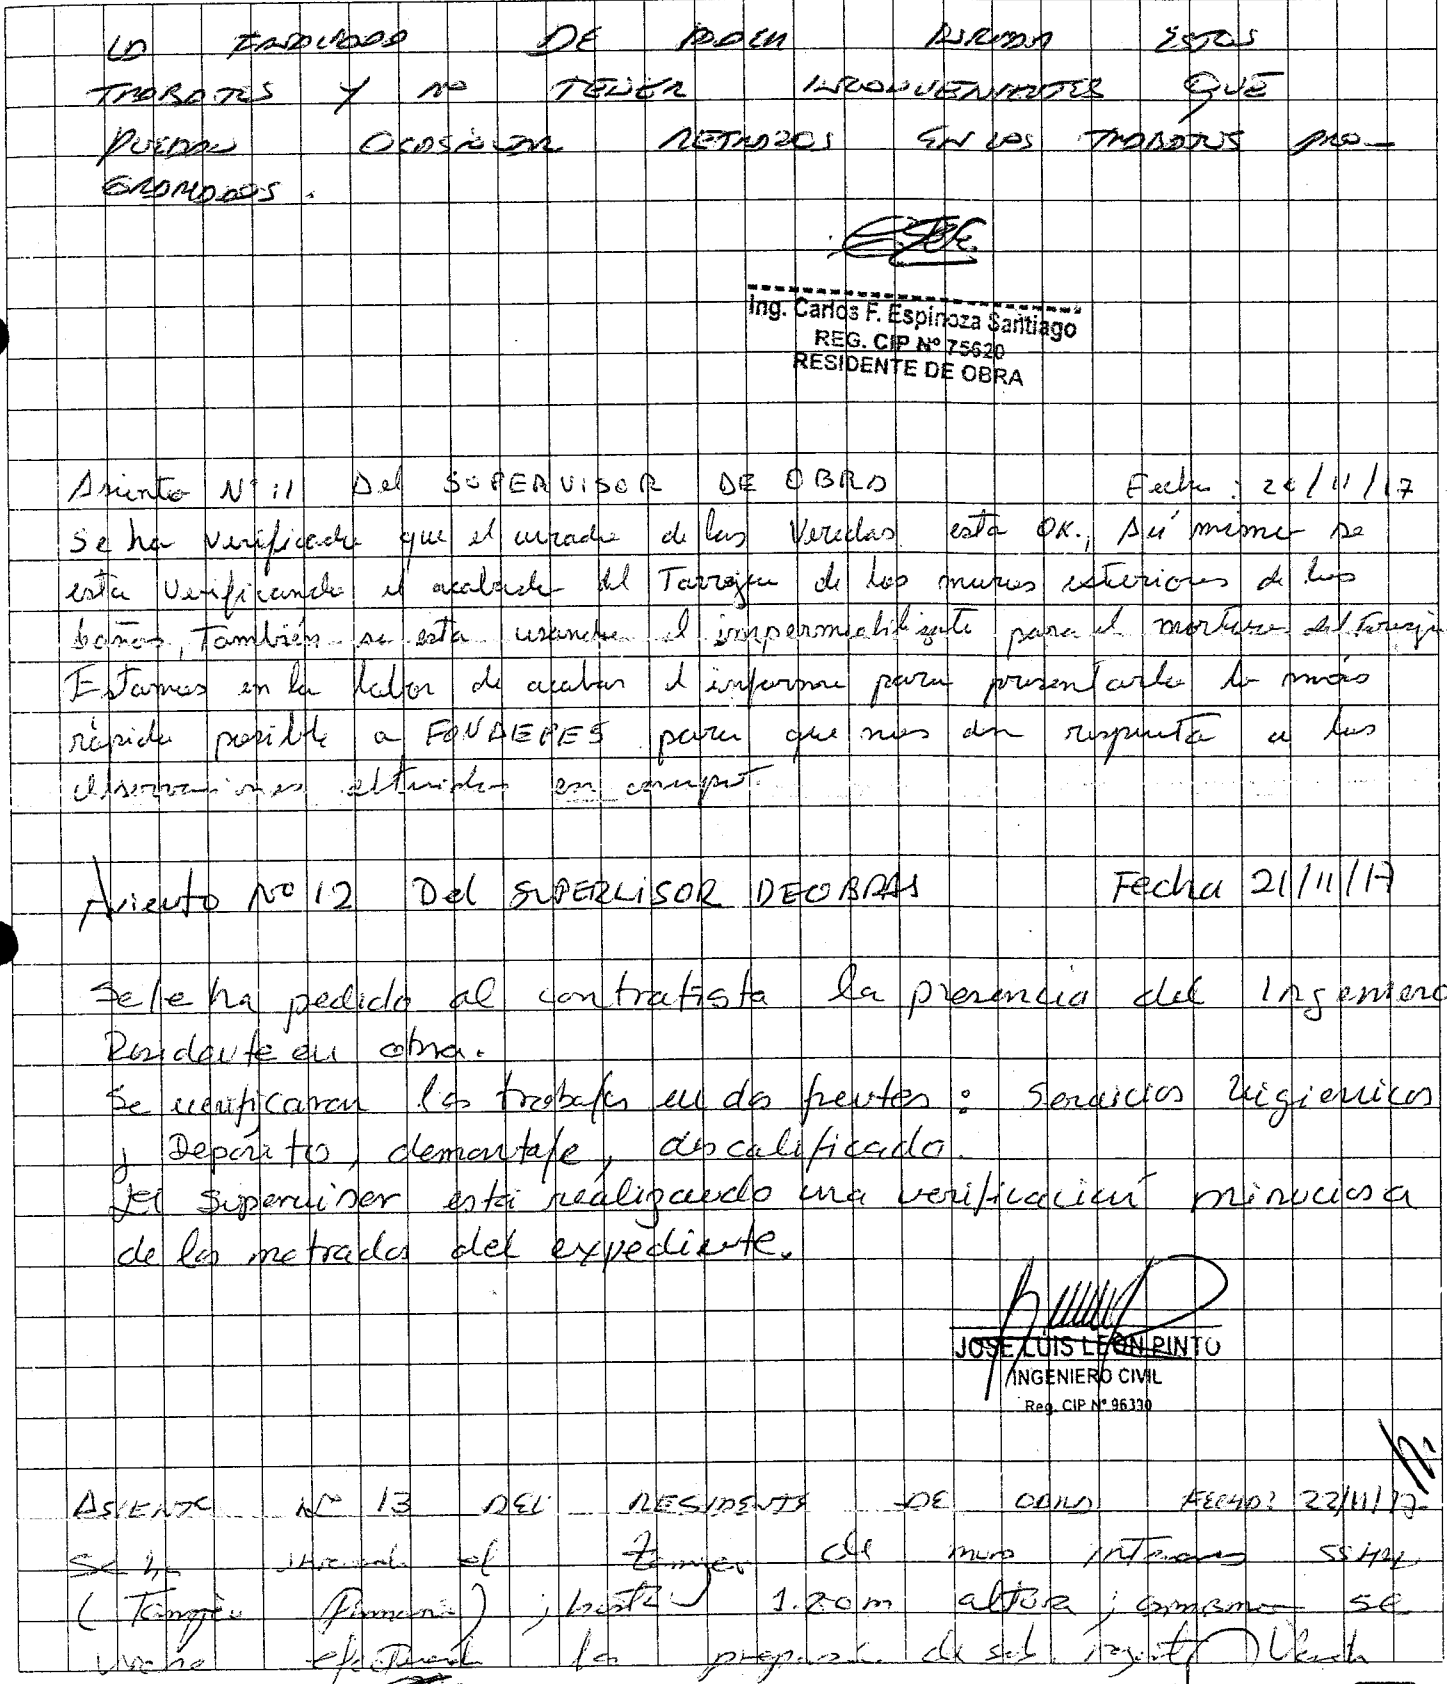 LO INDICADO DE PODER ESTOS
TRABAJOS Y NO TENER INCONVENIENTES QUE
PUEDAN OCASIONAR RETRAZOS EN LOS TRABAJOS PRO-
GRAMADOS.
Ing. Carlos F. Espinoza Santiago
REG. CIP Nº 75620
RESIDENTE DE OBRA
Asiento Nº 11 Del SUPERVISOR DE OBRA Fecha: 20/11/17
Se ha verificado que el curado de las Veredas esta OK., Así mismo se
esta Verificando el acabado del Tarrajeo de los muros exteriores de los
baños, También se esta usando el impermiabilizante para el mortero del Tarrajeo
Estamos en la labor de acabar el informe para presentarlo lo más
rápido posible a FONDEPES para que nos den respuesta a las
observaciones en campo.
Asiento Nº 12 Del SUPERVISOR DE OBRAS Fecha 21/11/17
Se le ha pedido al contratista la presencia del Ingeniero
Residente en obra.
Se verificaron los trabajos en dos frentes: Servicios Higienicos
y Depósito, demontaje, descalificado.
El Supervisor está realizando una verificación minuciosa
de los metrados del expediente.
JOSE LUIS LEON PINTO
INGENIERO CIVIL
Reg. CIP Nº 96330
ASIENTO Nº 13 DEL RESIDENTE DE OBRA FECHA: 22/11/17
Se ha iniciado el tarrajeo de muro interno SSHH
(Tarrajeo Primario); hasta 1.20m altura; asimismo se
viene efectuando la de sub